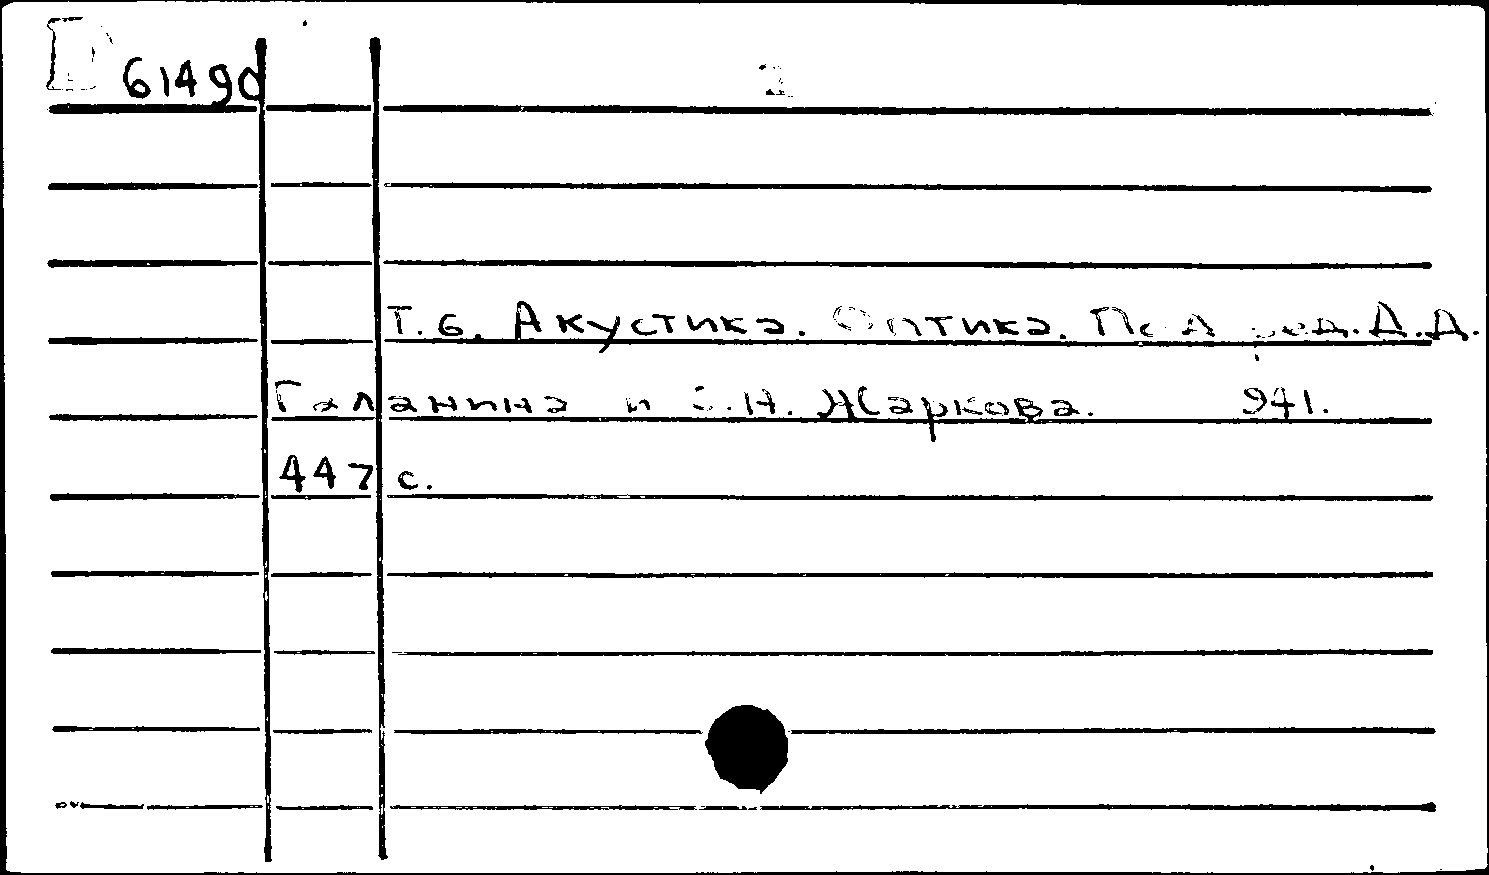 61490 2
Т.6. Акустика. Оптика. Под ред. Д.Д.
Галанина и С.Н. Жаркова. 941.
447 с.